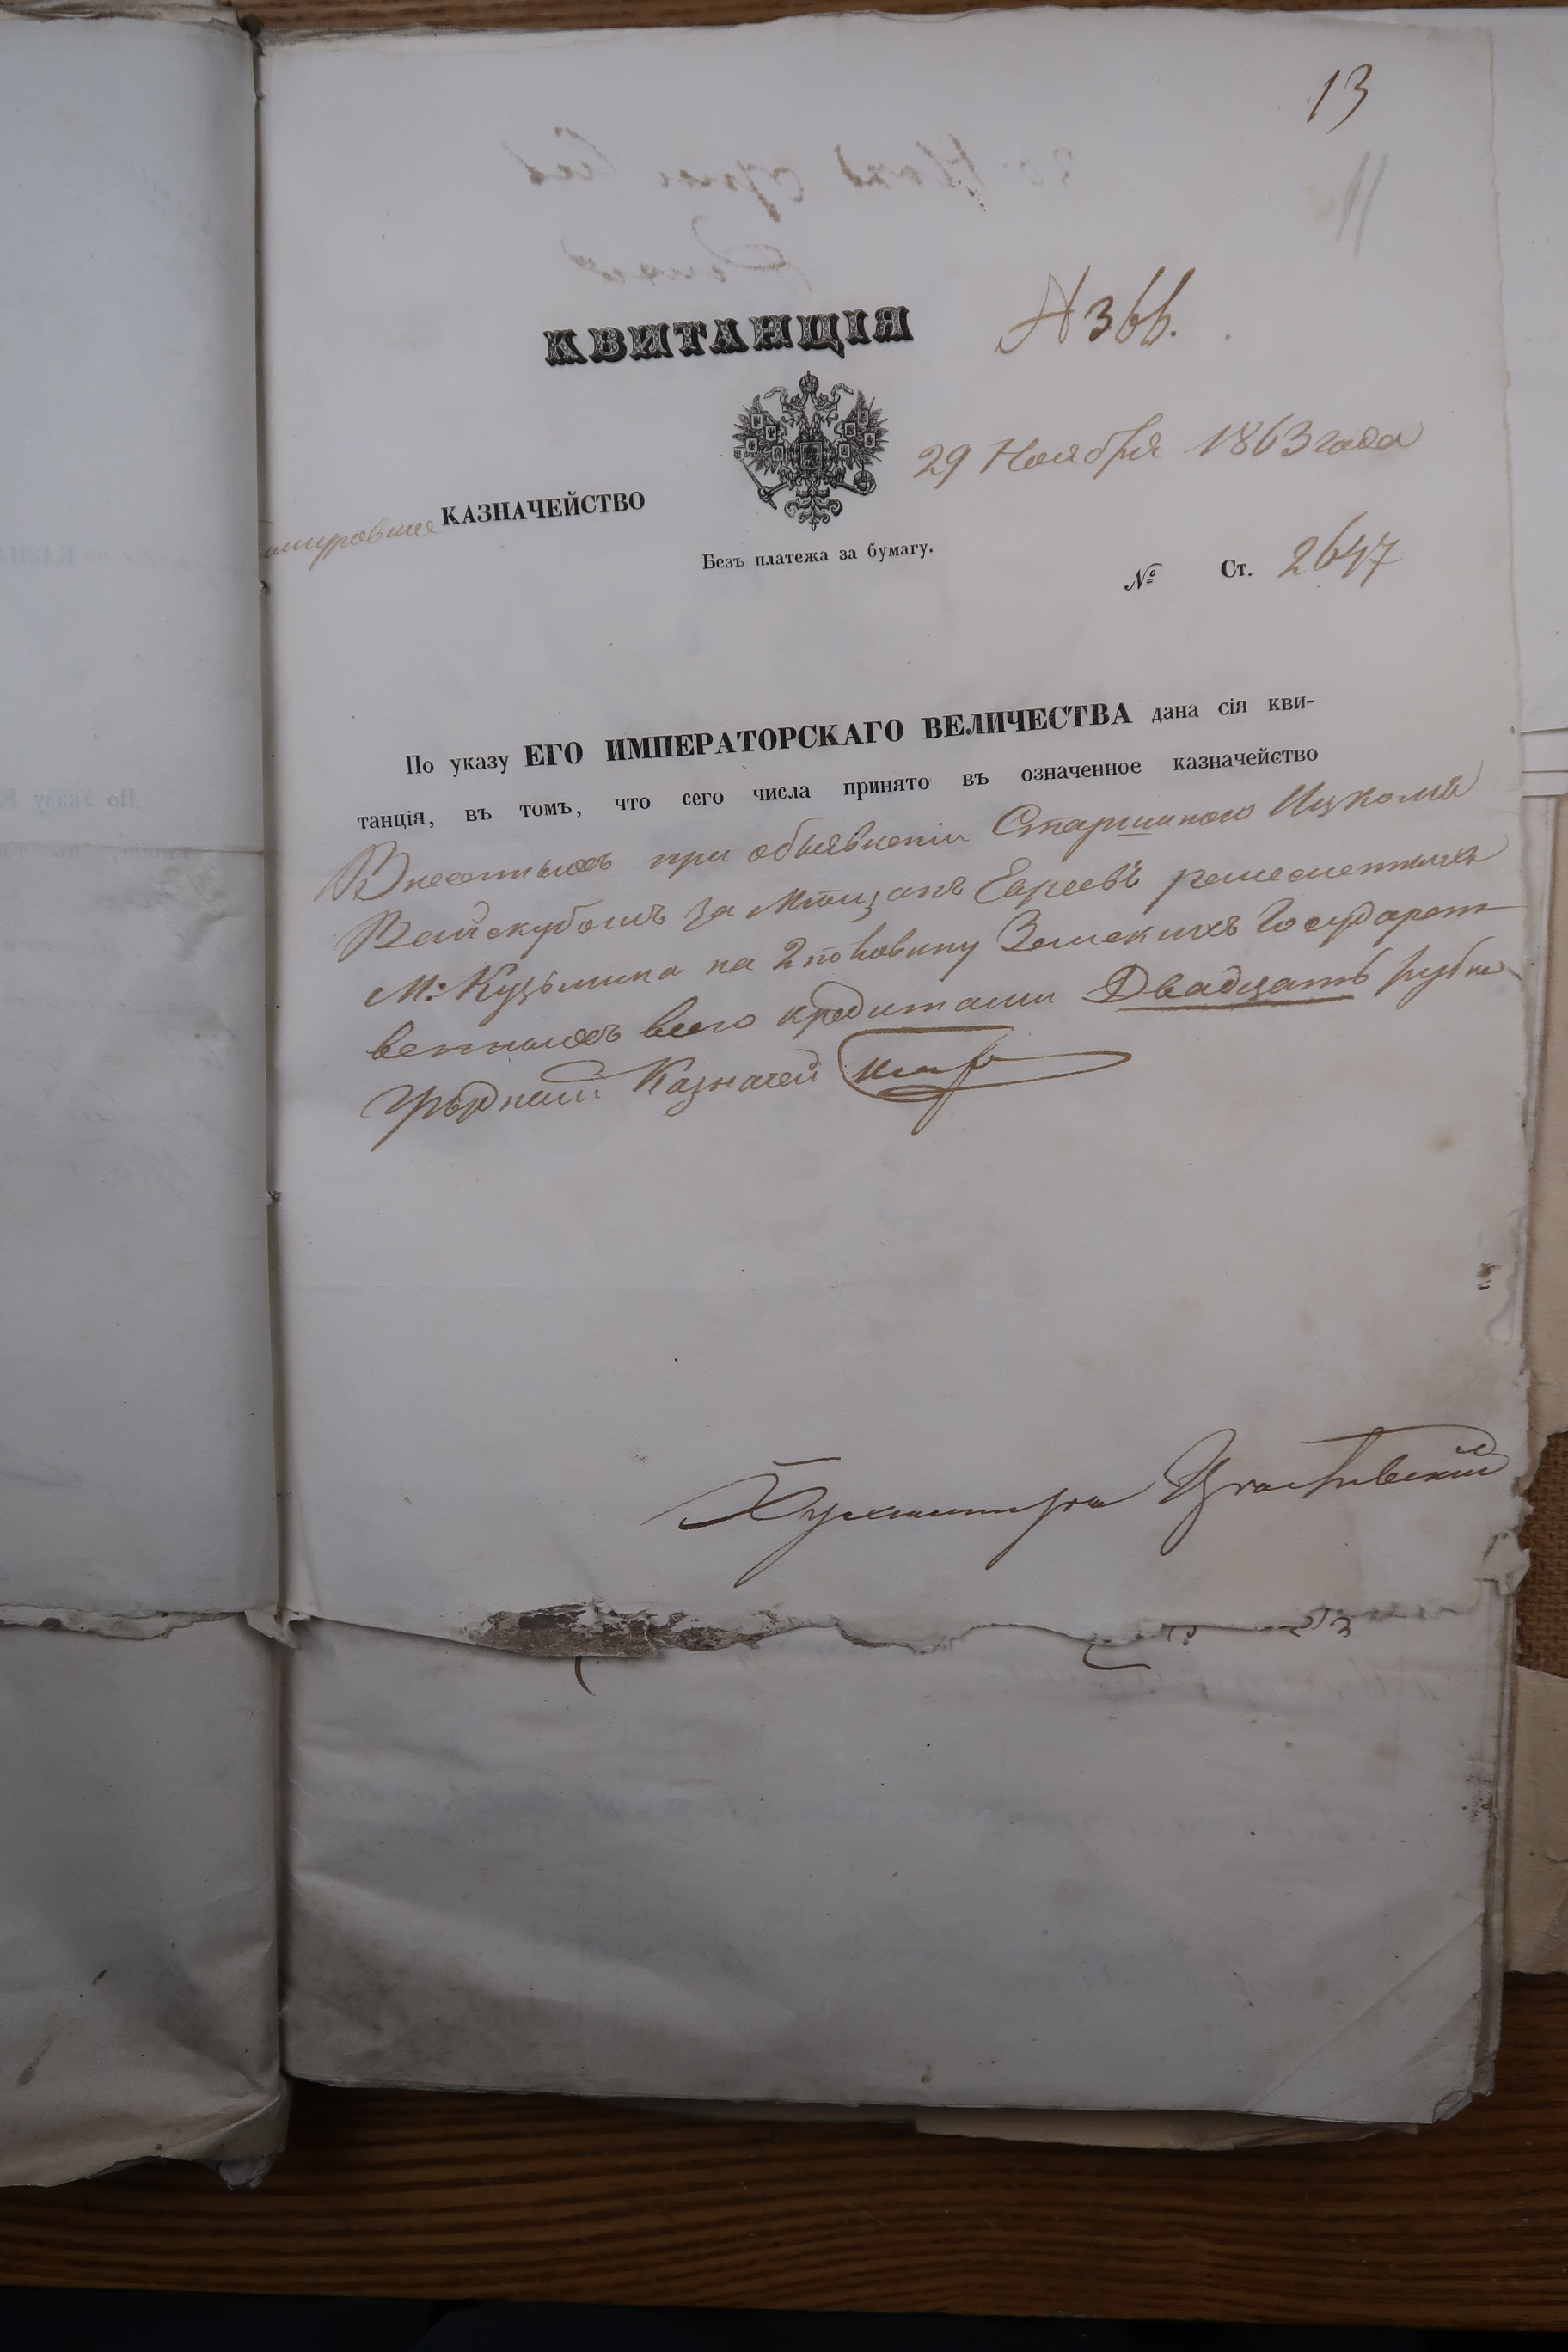 13
11
КВИТАНЦІЯ
№ 366.
29 Ноября 1863 года
КАЗНАЧЕЙСТВО
Безъ платежа за бумагу.
№ Ст. 2647
По указу ЕГО ИМПЕРАТОРСКАГО ВЕЛИЧЕСТВА дана сія кви-
танція, въ томъ, что сего числа принято въ означенное казначейство
Внесенныхъ при объявленіи Старшиною Ицкомъ
за Мѣщанъ Евреевъ
М: Кузьмина на 2 половину Земскихъ Государст
венныхъ всего кредитами Двадцать рубле
Уѣздный Казначей
Бухгалтеръ